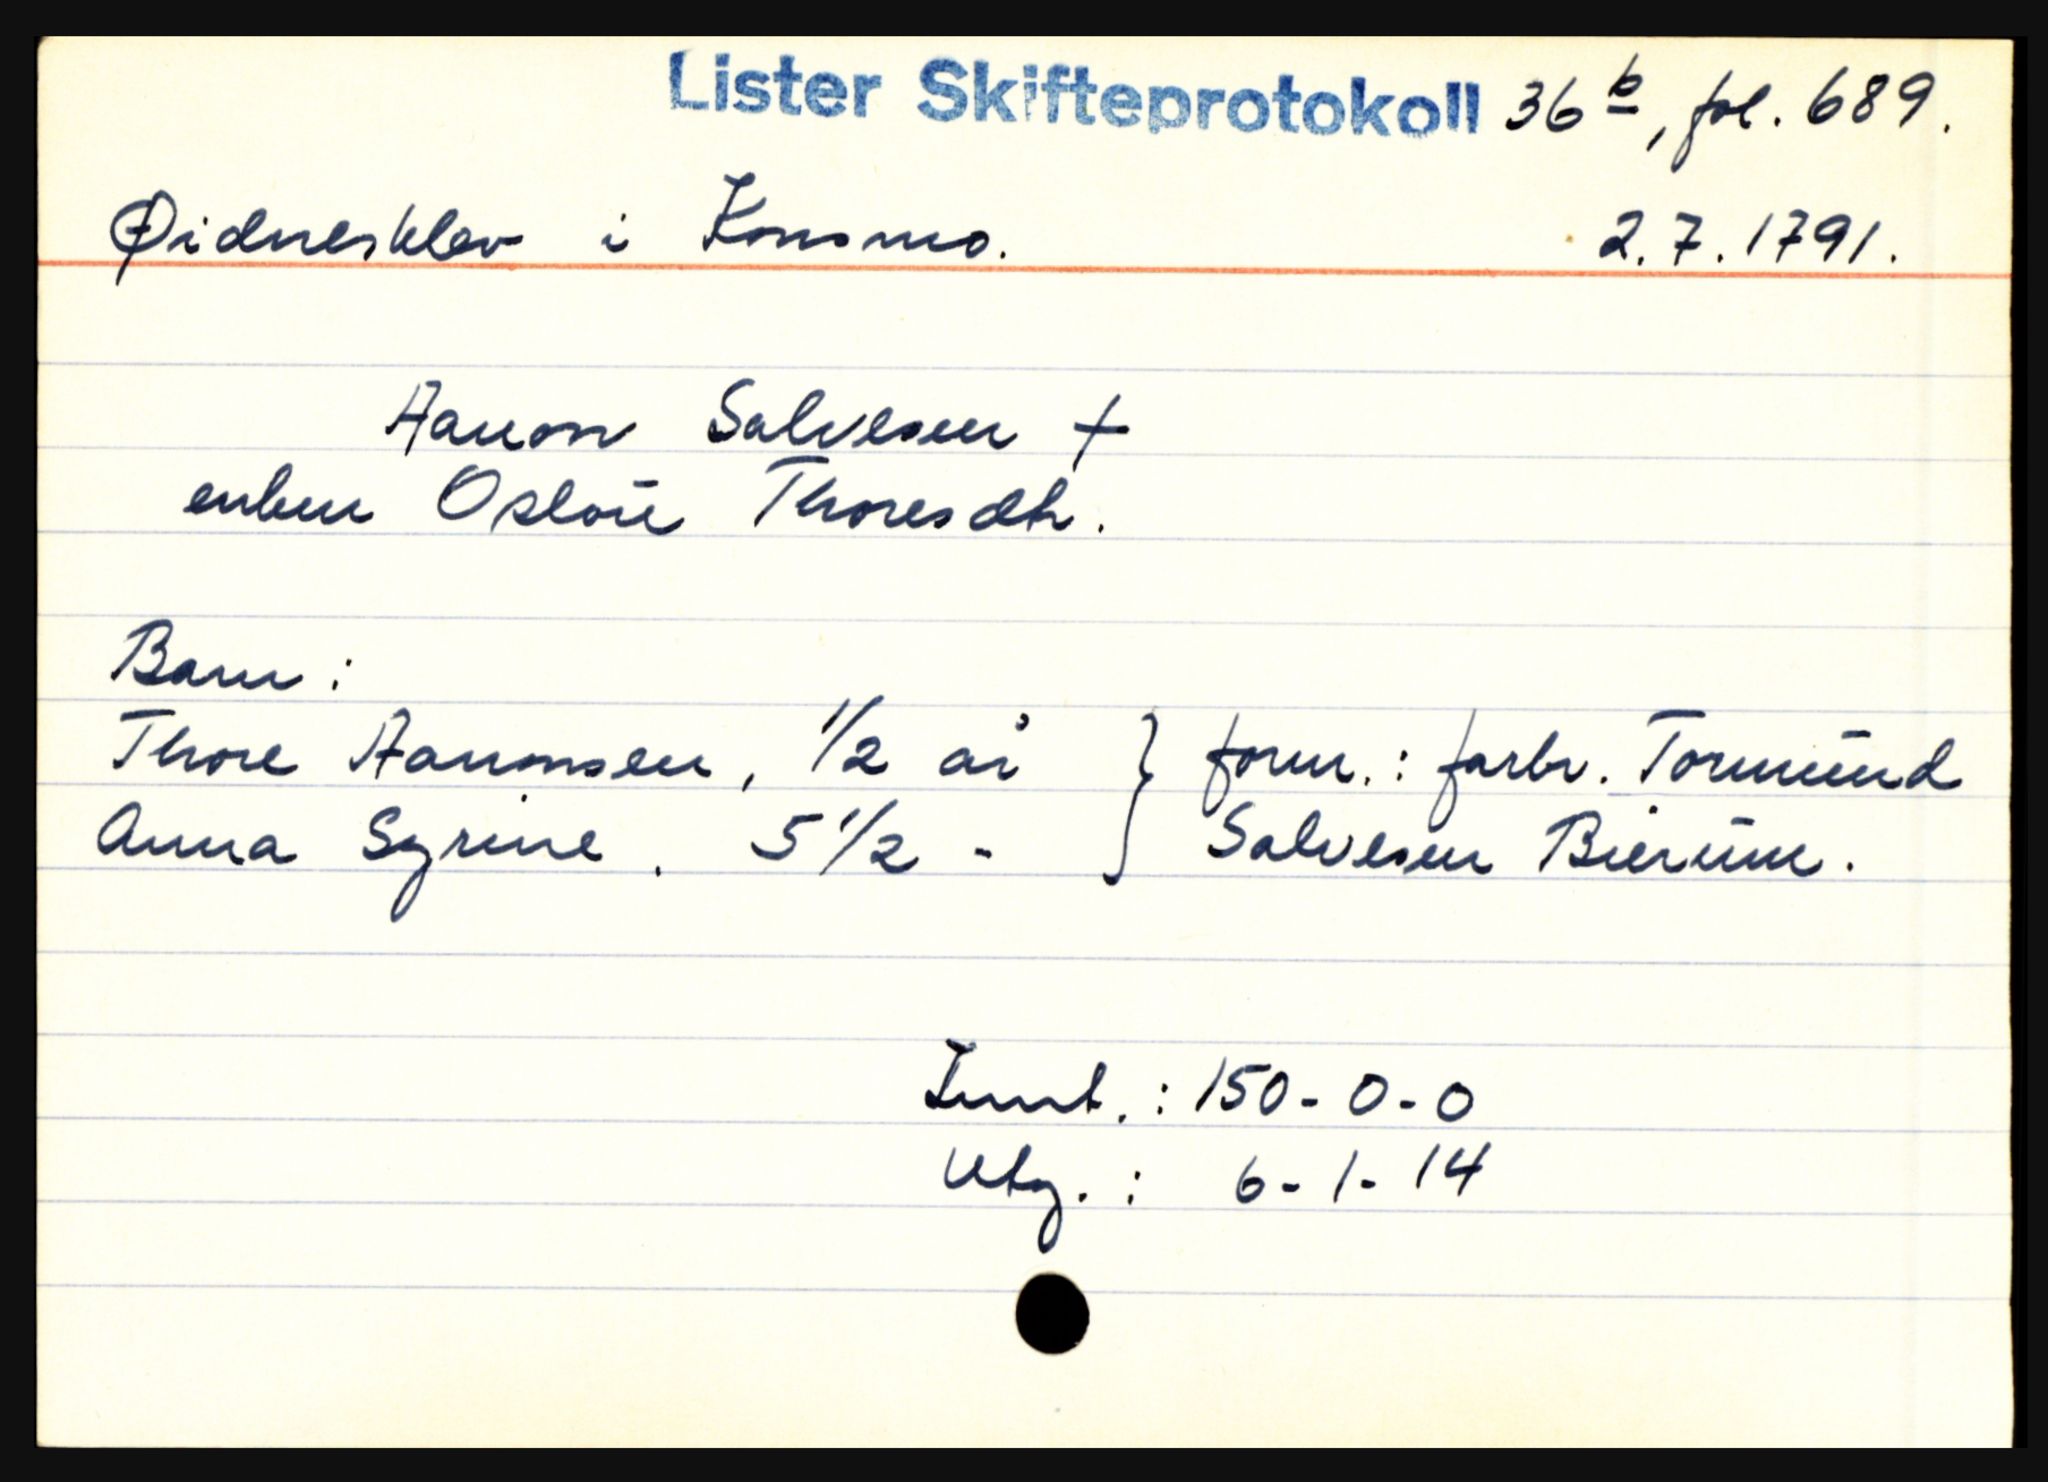 Lister Skifteprotokoll 36 b, fol. 689.
Øidnesklev i Konsmo. 2.7.1791.
Aanon Salvesen +
enken Osloug Thoresdtr.
Barn :
Thore Aanonsen, 1/2 år } form. : farbr. Tormund
Anna Syrine . 5 1/2 - } Salvesen Bierum.
Innt. : 150 - 0 - 0
Utg. : 6 - 1 - 14